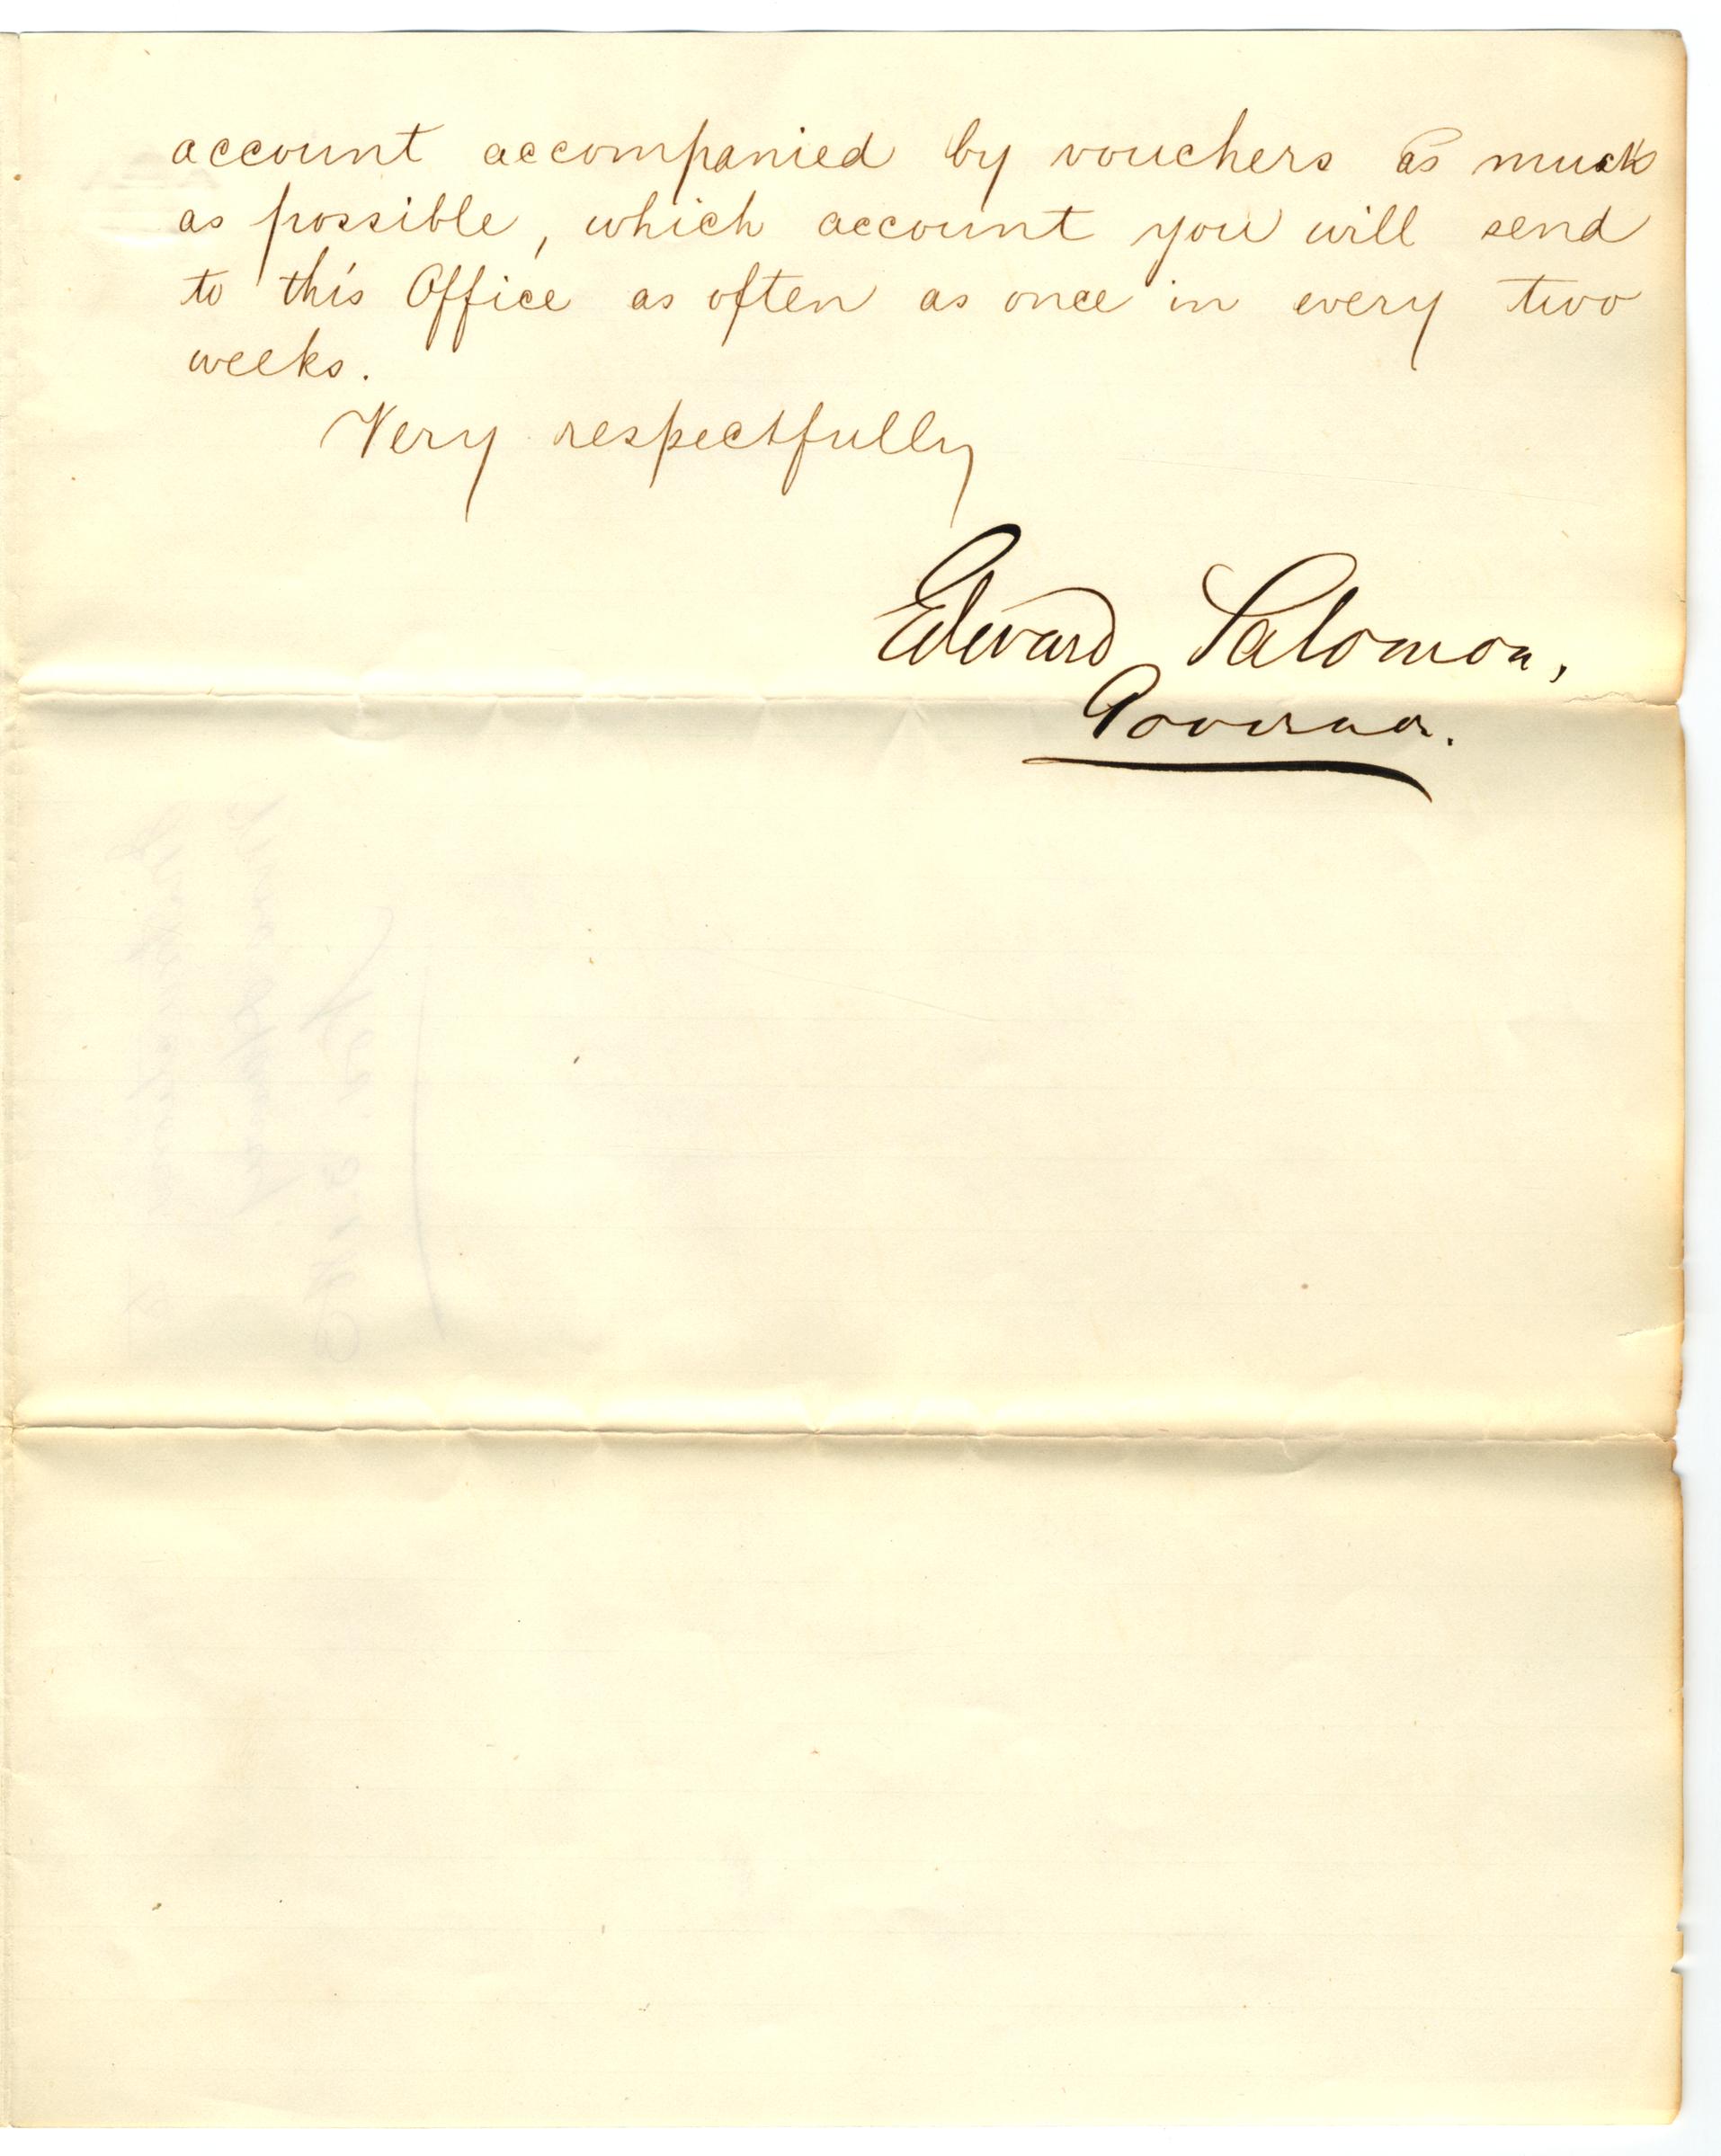 account accompanied by vouchers as much
as possible, which account you will send
to this Office as often as once in every two
weeks.
Very respectfully
Edward Salomon,
Governor.